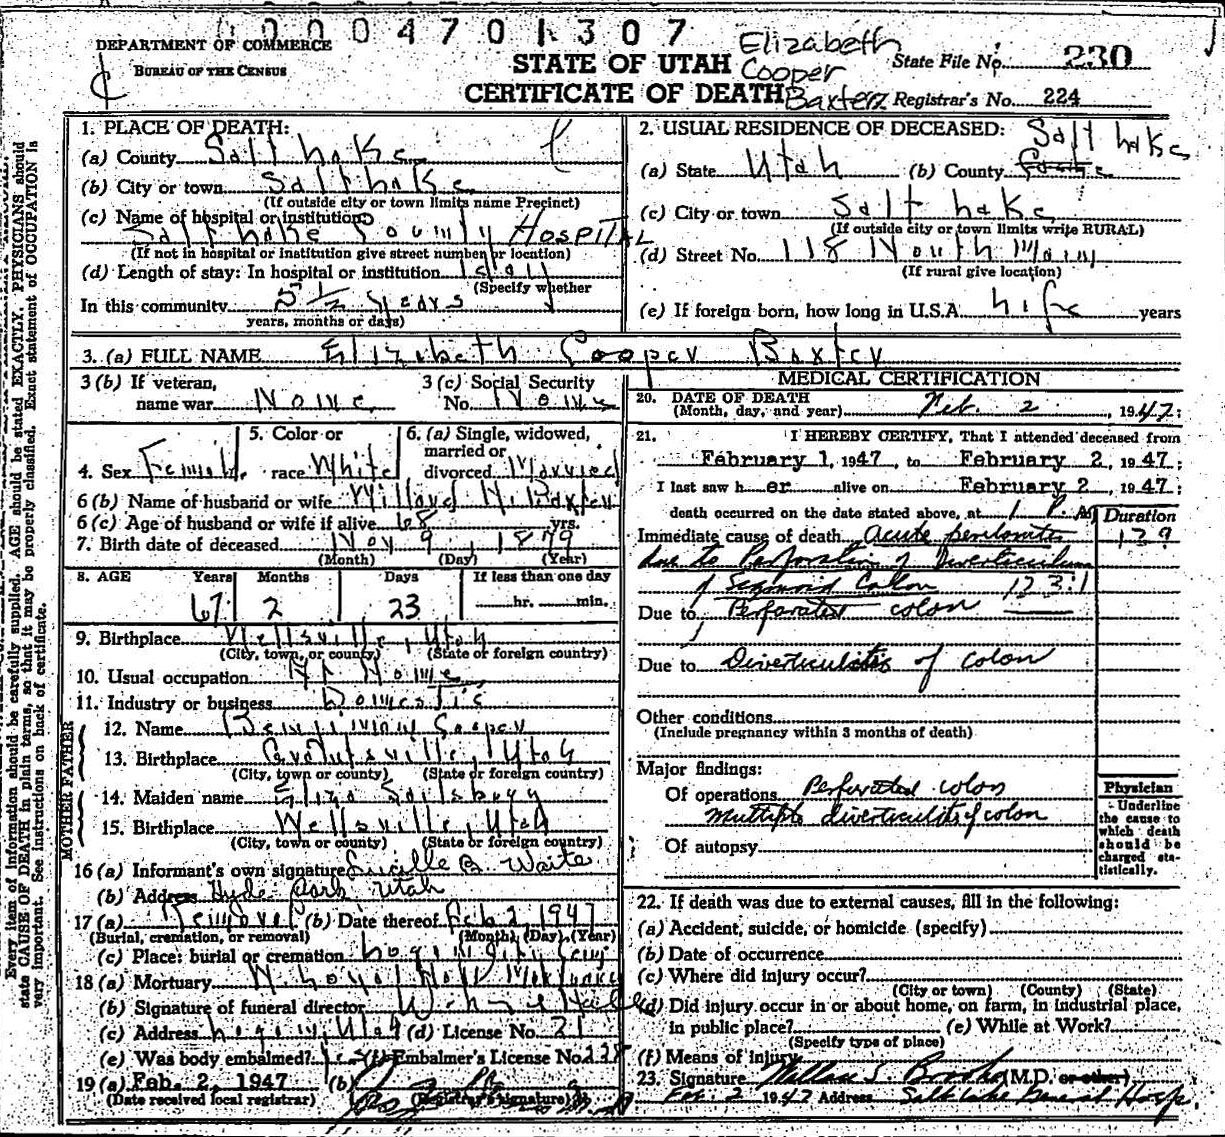 0004701307
DEPARTMENT OF COMMERCE
BUREAU OF THE CENSUS
STATE OF UTAH
CERTIFICATE OF DEATH
Elizabeth
Cooper
Baxter
State File No. 230
Registrar's No. 224
Every item of information should be carefully supplied. AGE should be stated EXACTLY. PHYSICIANS should
state CAUSE OF DEATH in plain terms, so that it may be properly classified. Exact statement of OCCUPATION is
very important. See instructions on back of certificate.
1. PLACE OF DEATH:
(a) County Salt Lake
(b) City or town Salt Lake
(If outside city or town limits name Precinct)
(c) Name of hospital or institution:
Salt Lake County HOSPITAL
(If not in hospital or institution give street number or location)
(d) Length of stay: In hospital or institution 1 day
(Specify whether
In this community 5 1/2 years
years, months or days)
2. USUAL RESIDENCE OF DECEASED:
(a) State Utah (b) County Salt Lake
(c) City or town Salt Lake
(If outside city or town limits write RURAL)
(d) Street No. 118 North Main
(If rural give location)
(e) If foreign born, how long in U.S.A. Life years
3. (a) FULL NAME Elizabeth Cooper Baxter
3 (b) If veteran,
name war None
3 (c) Social Security
No. None
4. Sex Female
5. Color or
race White
6. (a) Single, widowed,
married or
divorced Married
6 (b) Name of husband or wife Willard N. Baxter
6 (c) Age of husband or wife if alive 68 yrs.
7. Birth date of deceased Nov 9 1879
(Month) (Day) (Year)
8. AGE Years Months Days If less than one day
67 2 23 hr. min.
9. Birthplace Wellsville, Utah
(City, town, or county) (State or foreign country)
10. Usual occupation At Home
11. Industry or business Domestic
FATHER
12. Name Benjiman Cooper
13. Birthplace Utah
(City, town or county) (State or foreign country)
MOTHER
14. Maiden name
15. Birthplace Wellsville, Utah
(City, town or county) (State or foreign country)
16 (a) Informant's own signature Lucille B. Waite
(b) Address Hyde Park Utah
17 (a) Removal (b) Date thereof Feb 2, 1947
(Burial, cremation, or removal) (Month) (Day) (Year)
(c) Place: burial or cremation Logan City Cem
18 (a) Mortuary W. Loyal Hall Mortuary
(b) Signature of funeral director Hall
(c) Address Logan Utah (d) License No. 21
(e) Was body embalmed? Yes (f) Embalmer's License No.
19 (a) Feb. 2, 1947 (b)
(Date received local registrar) (Registrar's signature)
MEDICAL CERTIFICATION
20. DATE OF DEATH
(Month, day, and year) Feb. 2, 1947;
21. I HEREBY CERTIFY, That I attended deceased from
February 1, 1947, to February 2, 1947;
I last saw her alive on February 2, 1947;
death occurred on the date stated above, at 1 P. M
Duration
Immediate cause of death Acute peritonitis 129
due to Perforation of Diverticulum
of Sigmoid Colon 123:1
Due to Perforated colon
Due to Diverticulitis of colon
Other conditions
(Include pregnancy within 3 months of death)
Major findings:
Of operations Perforated colon
Multiple diverticulitis of colon
Of autopsy
Physician
Underline
the cause to
which death
should be
charged sta-
tistically.
22. If death was due to external causes, fill in the following:
(a) Accident, suicide, or homicide (specify)
(b) Date of occurrence
(c) Where did injury occur?
(City or town) (County) (State)
(d) Did injury occur in or about home, on farm, in industrial place,
in public place? (e) While at Work?
(Specify type of place)
(f) Means of injury
23. Signature Wallace S. Brooke (M.D. or other)
Feb. 2 1947 Address Salt Lake General Hosp.